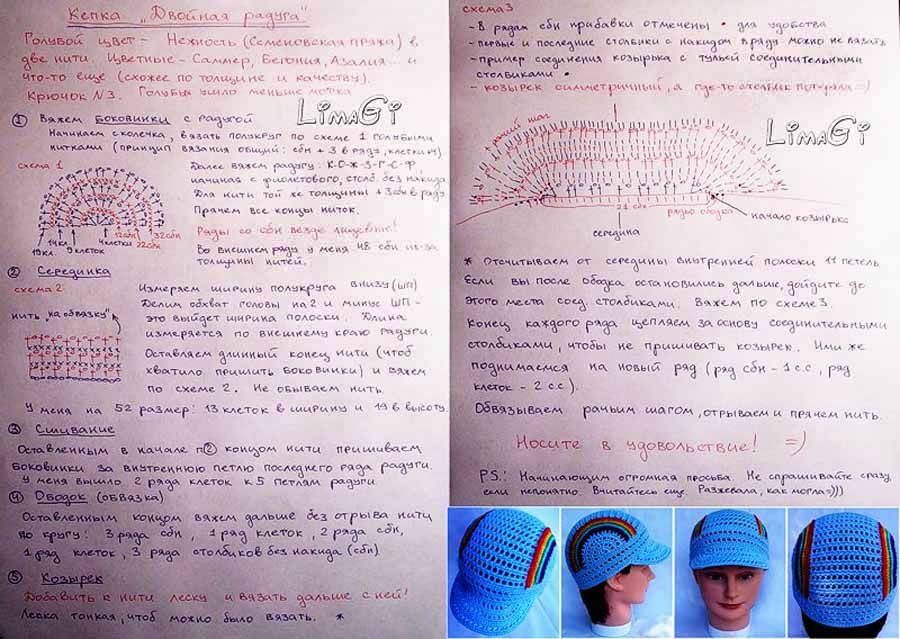 Кепка „Двойная радуга"
Голубой цвет – Нежность (Семеновская пряжа) в
две нити. Цветные – Саммер, Бегония, Азалия... и
что-то еще (схожее по толщине и качеству).
Крючок N3. Голубы ушло меньше мотка
LimaGi
① Вяжем боковинки с радугой
Начинаем с колечка, вязать полукруг по схеме 1 голубыми
нитками (принцип вязания общий: сбн + 3 в ряду, клетки +4)
схема 1
Далее вяжем радугу: К-О-Ж-З-Г-С-Ф
начиная с фиолетового, столб. без накида
Для нити той же толщины +3 сбн в ряду
Прячем все концы ниток.
Ряды со сбн везде лицевые!
Во внешнем ряду у меня 48 сбн из-за
толщины нитей.
19кл. 14кл. 9 клеток 4 клетки 12сбн 22сбн 32сбн
② Серединка
схема 2
нить „на обвязку"
Измеряем ширину полукруга внизу (ШП)
Делим обхват головы на 2 и минус ШП –
это выйдет ширина полоски. Длина
измеряется по внешнему краю радуги.
Оставляем длинный конец нити (чтоб
хватило пришить боковинки) и вяжем
по схеме 2. Не обываем нить.
У меня на 52 размер: 13 клеток в ширину и 19 в высоту.
③ Сшивание
Оставленным в начале п② концом нити пришиваем
боковинки за внутреннюю петлю последнего ряда радуги.
У меня вышло 2 ряда клеток к 5 петлям радуги.
④ Ободок (обвязка)
Оставленным концом вяжем дальше без отрыва нити
по кругу: 3 ряда сбн, 1 ряд клеток, 2 ряда сбн,
1 ряд клеток, 3 ряда столбиков без накида (сбн)
⑤ Козырек
Добавить к нити леску и вязать дальше с ней!
Леска тонкая, чтоб можно было вязать. *
схема 3
- В рядах сбн прибавки отмечены • для удобства
- первые и последние столбики с накидом в ряду можно не вязать
- пример соединения козырька с тульей соединительными
столбиками •
- козырек симметричный, а где-то столбик потеряла =)
LimaGi
рачий шаг
21 сбн
рядый ободка
начало козырька
середина
* Отсчитываем от середины внутренней полоски 11 петель
Если вы после ободка остановились дальше, дойдите до
этого места соед. столбиками. Вяжем по схеме 3.
Конец каждого ряда цепляем за основу соединительными
столбиками, чтобы не пришивать козырек. Ими же
поднимаемся на новый ряд (ряд сбн - 1 с.с., ряд
клеток - 2 с.с.).
Обвязываем рачьим шагом, отрываем и прячем нить.
Носите в удовольствие! =)
PS.: Начинающим огромная просьба. Не спрашивайте сразу,
если непонятно. Вчитайтесь еще. Разжевала, как могла=)))